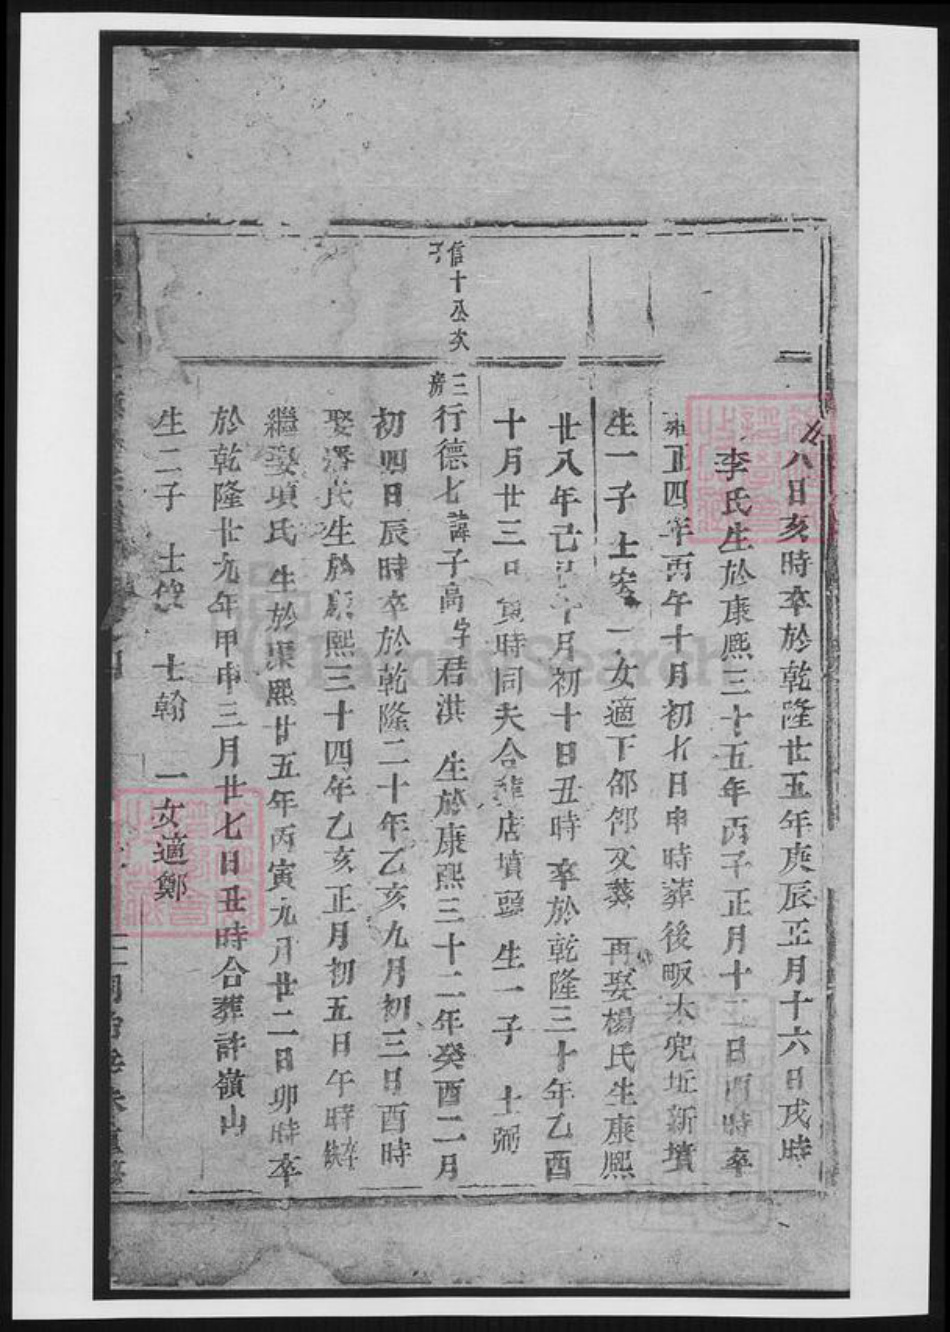 八日亥時卒於乾隆廿五年庚辰正月十六日戌時
李氏生於康熙三十五年丙子正月十二日酉時卒
雍正四年丙午十月初七日申時葬後畈大兜坵新墳
生一子 士宏 一女適下邵邵文葵 再娶楊氏生康熙
廿八年己巳十月初十日丑時 卒於乾隆三十年乙酉
十月廿三日寅時同夫合葬店墳頭 生一子 士弼
信十公次子
三房行德七諱子高字君洪 生於康熙三十二年癸酉二月
初四日辰時卒於乾隆二十年乙亥九月初三日酉時
娶潘氏生於康熙三十四年乙亥正月初五日午時卒缺
繼娶項氏 生於康熙廿五年丙寅九月廿二日卯時卒
於乾隆廿九年甲申三月廿七日丑時合葬許嶺山
生二子 士俊 士翰 一女適鄭
FamilySearch